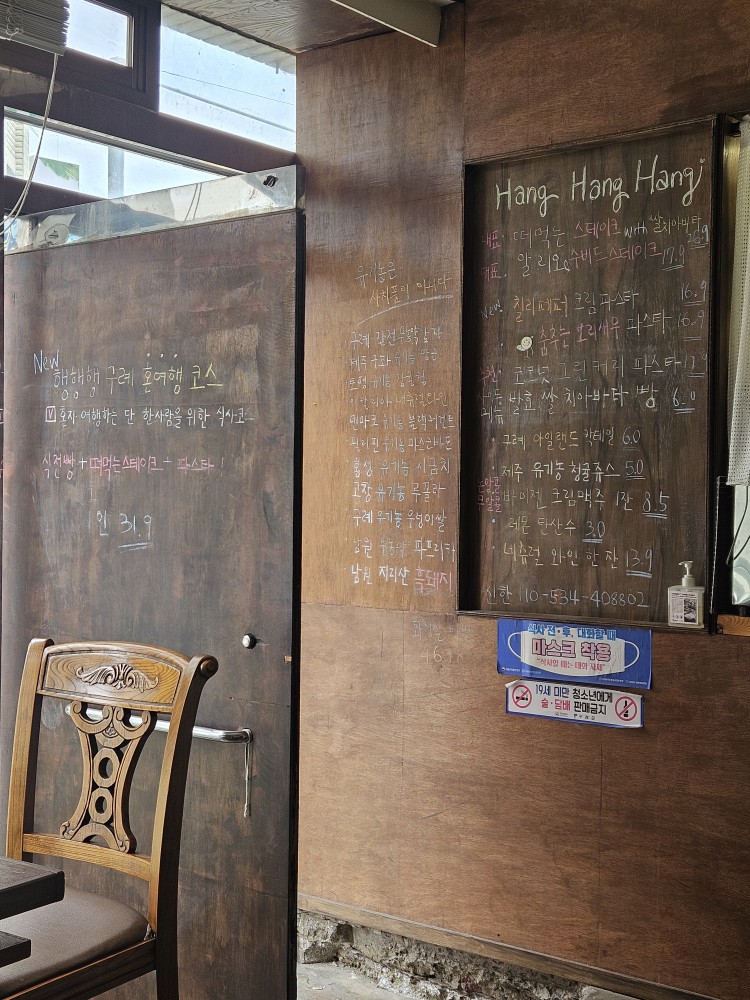 New
행행행 구례 혼여행 코스
혼자 여행하는 단 한사람을 위한 식사코스
식전빵 + 떠먹는스테이크 + 파스타!
인 31.9
유기농은
사치품이 아니다
구례
제주 유기농
유기농
유기농 블랙커런트
유기농
홍성 유기농 시금치
고창 유기농 루꼴라
구례 유기농 우렁이쌀
강원 파프리카
남원 지리산 흑돼지
Hang Hang Hang!
대표 떠먹는 스테이크 with 쌀치아바타
대표 알리오 수비드스테이크 17.9
New 칠리페퍼 크림 파스타 16.9
춤추는 보리새우 파스타 16.9
추천 코코넛 그린 커리 파스타 17.9
발효 쌀 치아바타 빵 6.0
구례 아일랜드 칵테일 6.0
제주 유기농 청귤쥬스 5.0
바이젠 크림맥주 1잔 8.5
레몬 탄산수 3.0
내츄럴 와인 한 잔 13.9
신한 110-534-408802
식사 전·후, 대화할 때
마스크 착용
"식사할 때는 대화 자제"
19세 미만 청소년에게
술·담배 판매금지